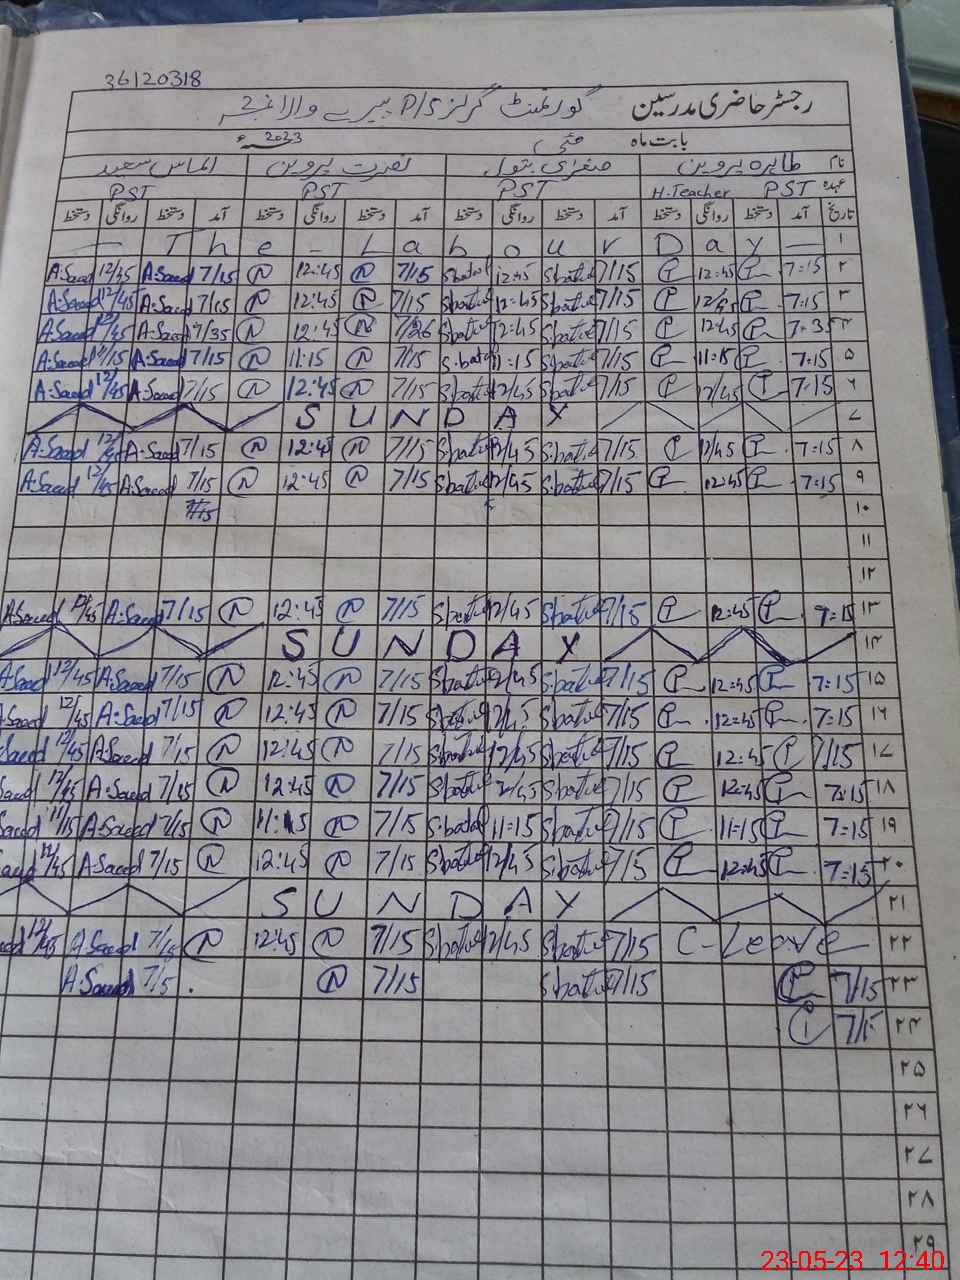 36120318
رجسٹر حاضری مدرسین گورنمنٹ گرلز P/S
بابت ماہ مئی 2023ء
نام طاہرہ پروین صغراں بتول نصرت پروین الماس سعید
عہدہ PST H.Teacher PST PST PST
تاریخ آمد دستخط روانگی دستخط آمد دستخط روانگی دستخط آمد دستخط روانگی دستخط آمد دستخط روانگی دستخط
۱ The - Labour Day
A.Saeed 12/45 A.Saeed 7/15 N 12:45 N 7/15 Sbatul 12:45 Sbatul 7/15 P 12:45 P 7:15 ۲
A.Saeed 12/45 A.Saeed 7/15 N 12:45 N 7/15 Sbatul 12:45 Sbatul 7/15 P 12/45 P 7:15 ۳
A.Saeed 12/45 A.Saeed 7/35 N 12:45 N Sbatul 12:45 Sbatul 7/15 P 12:45 P 7:35 ۴
A.Saeed 11/15 A.Saeed 7/15 N 11:15 N 7/15 S.batul 11:15 Sbatul 7/15 P 11:15 P 7:15 ۵
A.Saeed 12/45 A.Saeed 7/15 N 12:45 N 7/15 Sbatul 12/45 Sbatul 7/15 P 12/45 P 7:15 ۶
SUNDAY ۷
A.Saeed 12/45 A.Saeed 7/15 N 12:45 N 7/15 Sbatul 12/45 Sbatul 7/15 P 12/45 P 7:15 ۸
A.Saeed 12/45 A.Saeed 7/15 N 12:45 N 7/15 Sbatul 12/45 Sbatul 7/15 P 12:45 P 7:15 ۹
7/15 ۱۰
۱۱
۱۲
A.Saeed 12/45 A.Saeed 7/15 N 12:45 N 7/15 Sbatul 12/45 Sbatul 7/15 P 12:45 P 7:15 ۱۳
SUNDAY ۱۴
A.Saeed 12/45 A.Saeed 7/15 N 12:45 N 7/15 Sbatul 12/45 Sbatul 7/15 P 12:45 P 7:15 ۱۵
12/45 A.Saeed 7/15 N 12:45 N 7/15 Sbatul 12/45 Sbatul 7/15 P 12:45 P 7:15 ۱۶
12/45 A.Saeed 7/15 N 12:45 N 7/15 Sbatul 12/45 Sbatul 7/15 P 12:45 P 7/15 ۱۷
12/45 A.Saeed 7/15 N 12:45 N 7/15 Sbatul 12/45 Sbatul 7/15 P 12:45 P 7:15 ۱۸
11/15 A.Saeed 7/15 N 11:15 N 7/15 S.batul 11:15 Sbatul 7/15 P 11:15 P 7:15 ۱۹
12/45 A.Saeed 7/15 N 12:45 N 7/15 Sbatul 12/45 Sbatul 7/15 P 12:45 P 7:15 ۲۰
SUNDAY ۲۱
12/45 A.Saeed 7/15 N 12:45 N 7/15 Sbatul 12/45 Sbatul 7/15 C-Leave ۲۲
A.Saeed 7/15 N 7/15 Sbatul 7/15 P 7/15 ۲۳
7/15 ۲۴
۲۵
۲۶
۲۷
۲۸
۲۹
23-05-23 12:40